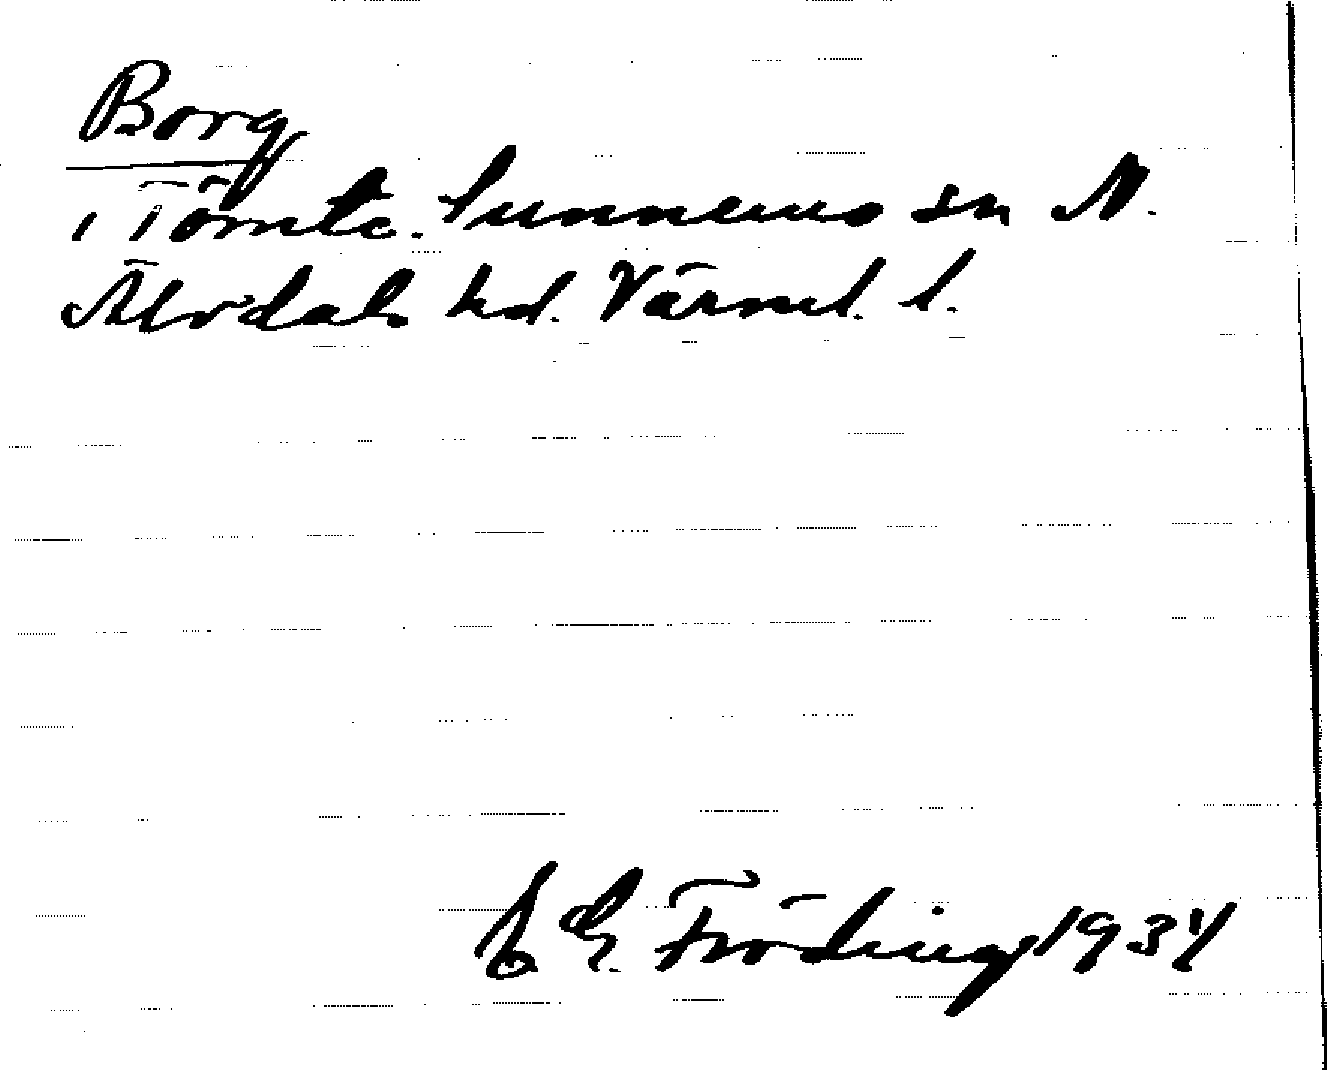 Borg
i Tömte. Sunnemo sn N.
Älvdals hd. Värml. l.
E Fröding 1934